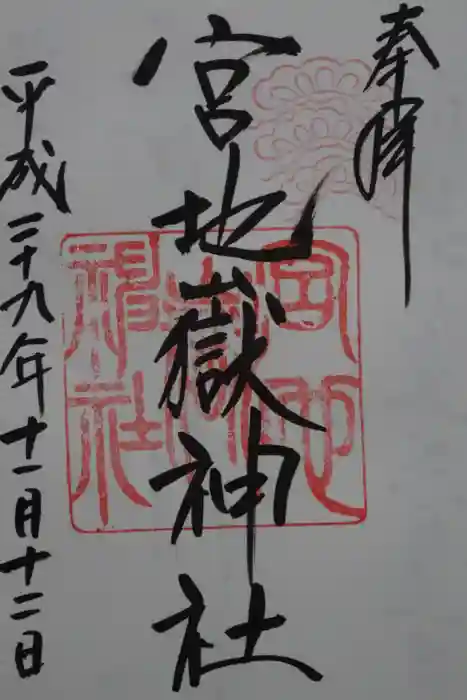 奉拝
宮地嶽神社
平成二十九年十一月十二日
宮地嶽神社